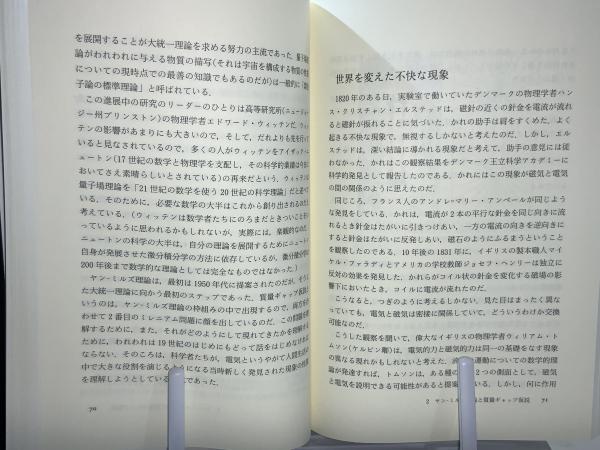 を展開することが大統一理論を求める努力の主流であった. 量子
論がわれわれに与える物質の描写(それは宇宙を構成する物質の性
についての現時点での最善の知識でもあるのだが)は一般的に
子論の標準理論」と呼ばれている.
この進展中の研究のリーダーのひとりは高等研究所(ニュー
ジー州プリンストン)の物理学者エドワード・ウィッテンだ. ウィ
テンの影響があまりにも大きいので, そして, だれよりも先を行って
いると見なされているので, 多くの人がウィッテンをアイザック・
ュートン(17世紀の数学と物理学を支配し, その科学的業績は今日に
おいてさえ素晴らしいとされている)の再来だという. ウィッテン
量子場理論を「21世紀の数学を使う20世紀の科学理論」だと述べ
いる. そのために, 必要な数学の大半はこれから創り出されるのだと
考えている. (ウィッテンは数学者たちにのろまだときついことを
っているように思われるかもしれないが, 実際には, 楽観的なのだ.
ニュートンの科学の大半は, 自分の理論を展開するためにニュート
自身が発展させた微分積分学の方法に依存しているが, 微分積分学は
200年後まで数学的な理論としては完全なものではなかった.)
ヤン-ミルズ理論は, 最初は1950年代に提案されたのだが, そう
た大統一理論に向かう最初のステップであった. 質量ギャップ仮説
いうのは, ヤン-ミルズ理論の枠組みの中で出現するので, 両方
わせて2番目のミレニアム問題に顔を出しているのだ. この問題を理
解するために, また, それがどのようにして現れてきたかを理解する
ために, われわれは19世紀のはじめにもどって話をはじめなければ
ならない. そのころは, 科学者たちが, 電気というやがて人間生活の
中で大きな役割を演じるようになる当時新しく発見された現象の性質
を理解しようとしている であった.
70
世界を変えた不快な現象
1820年のある日, 実験室で働いていたデンマークの物理学者ハン
ス・クリスチャン・エルステッドは, 磁針の近くの針金を電流が流れ
ると磁針が振れることに気づいた. かれの助手は肩をすくめた. よく
起きる不快な現象で, 無視するしかないと考えたのだ. しかし, エル
ステッドは, 深い結論に導かれる現象だと考えて, 助手の意見には従
わなかった. かれはこの観察結果をデンマーク王立科学アカデミーに
科学的発見として報告したのである. かれにはこの現象が磁気と電気
の間の関係のように思えたのだ.
同じころ, フランス人のアンドレ=マリー・アンペールが同じよう
な発見をしている. かれは, 電流が2本の平行な針金を同じ向きに流
れるとき針金はたがいに引きつけあい, 一方の電流の向きを逆向きに
すると針金がたがいに反発しあい, 磁石のようにふるまうということ
を観察したのである. 10年後の1831年に, イギリスの製本職人マイ
ケル・ファラディとアメリカの学校教師ジョセフ・ヘンリーは独立に
反対の効果を発見した. かれらがコイル状の針金を変化する磁場の影
響下においたとき, コイルに電流が流れたのだ.
こうなると, つぎのように考えるしかない. 見た目はまったく異な
っていても, 電気と磁気は密接に関係していて, どういうわけか交換
可能なのだ.
こうした観察を聞いて, 偉大なイギリスの物理学者ウィリアム・ト
ムソン(ケルビン卿)は, 電気的力と磁気的力は同一の基礎をなす現象
の異なる現れかもしれないと考えた. 運動についての数学的理
論が発達すれば, トムソンは, ある種の 2つの側面として, 磁気
と電気を説明できる可能性があると提案 いる. しかし, 何に作用
2 ヤン-ミルズ と質量ギャップ仮説 71